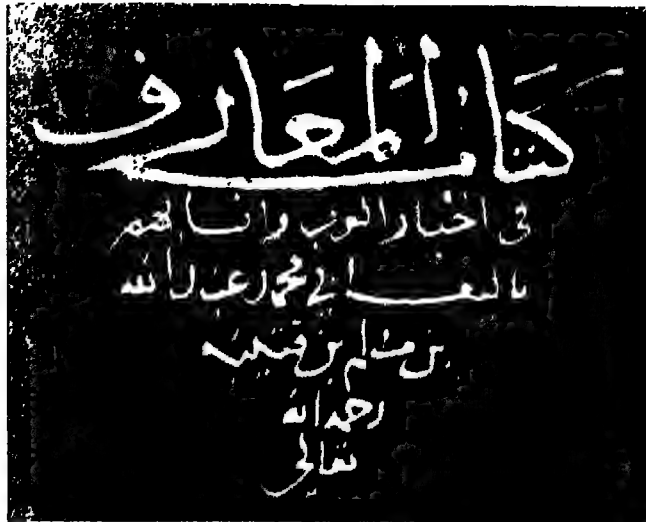 كتاب المعارف
في اخبار العرب وانسابهم
تاليف ابي محمد عبد الله
بن مسلم بن قتيبه
رحمه الله
تعالى